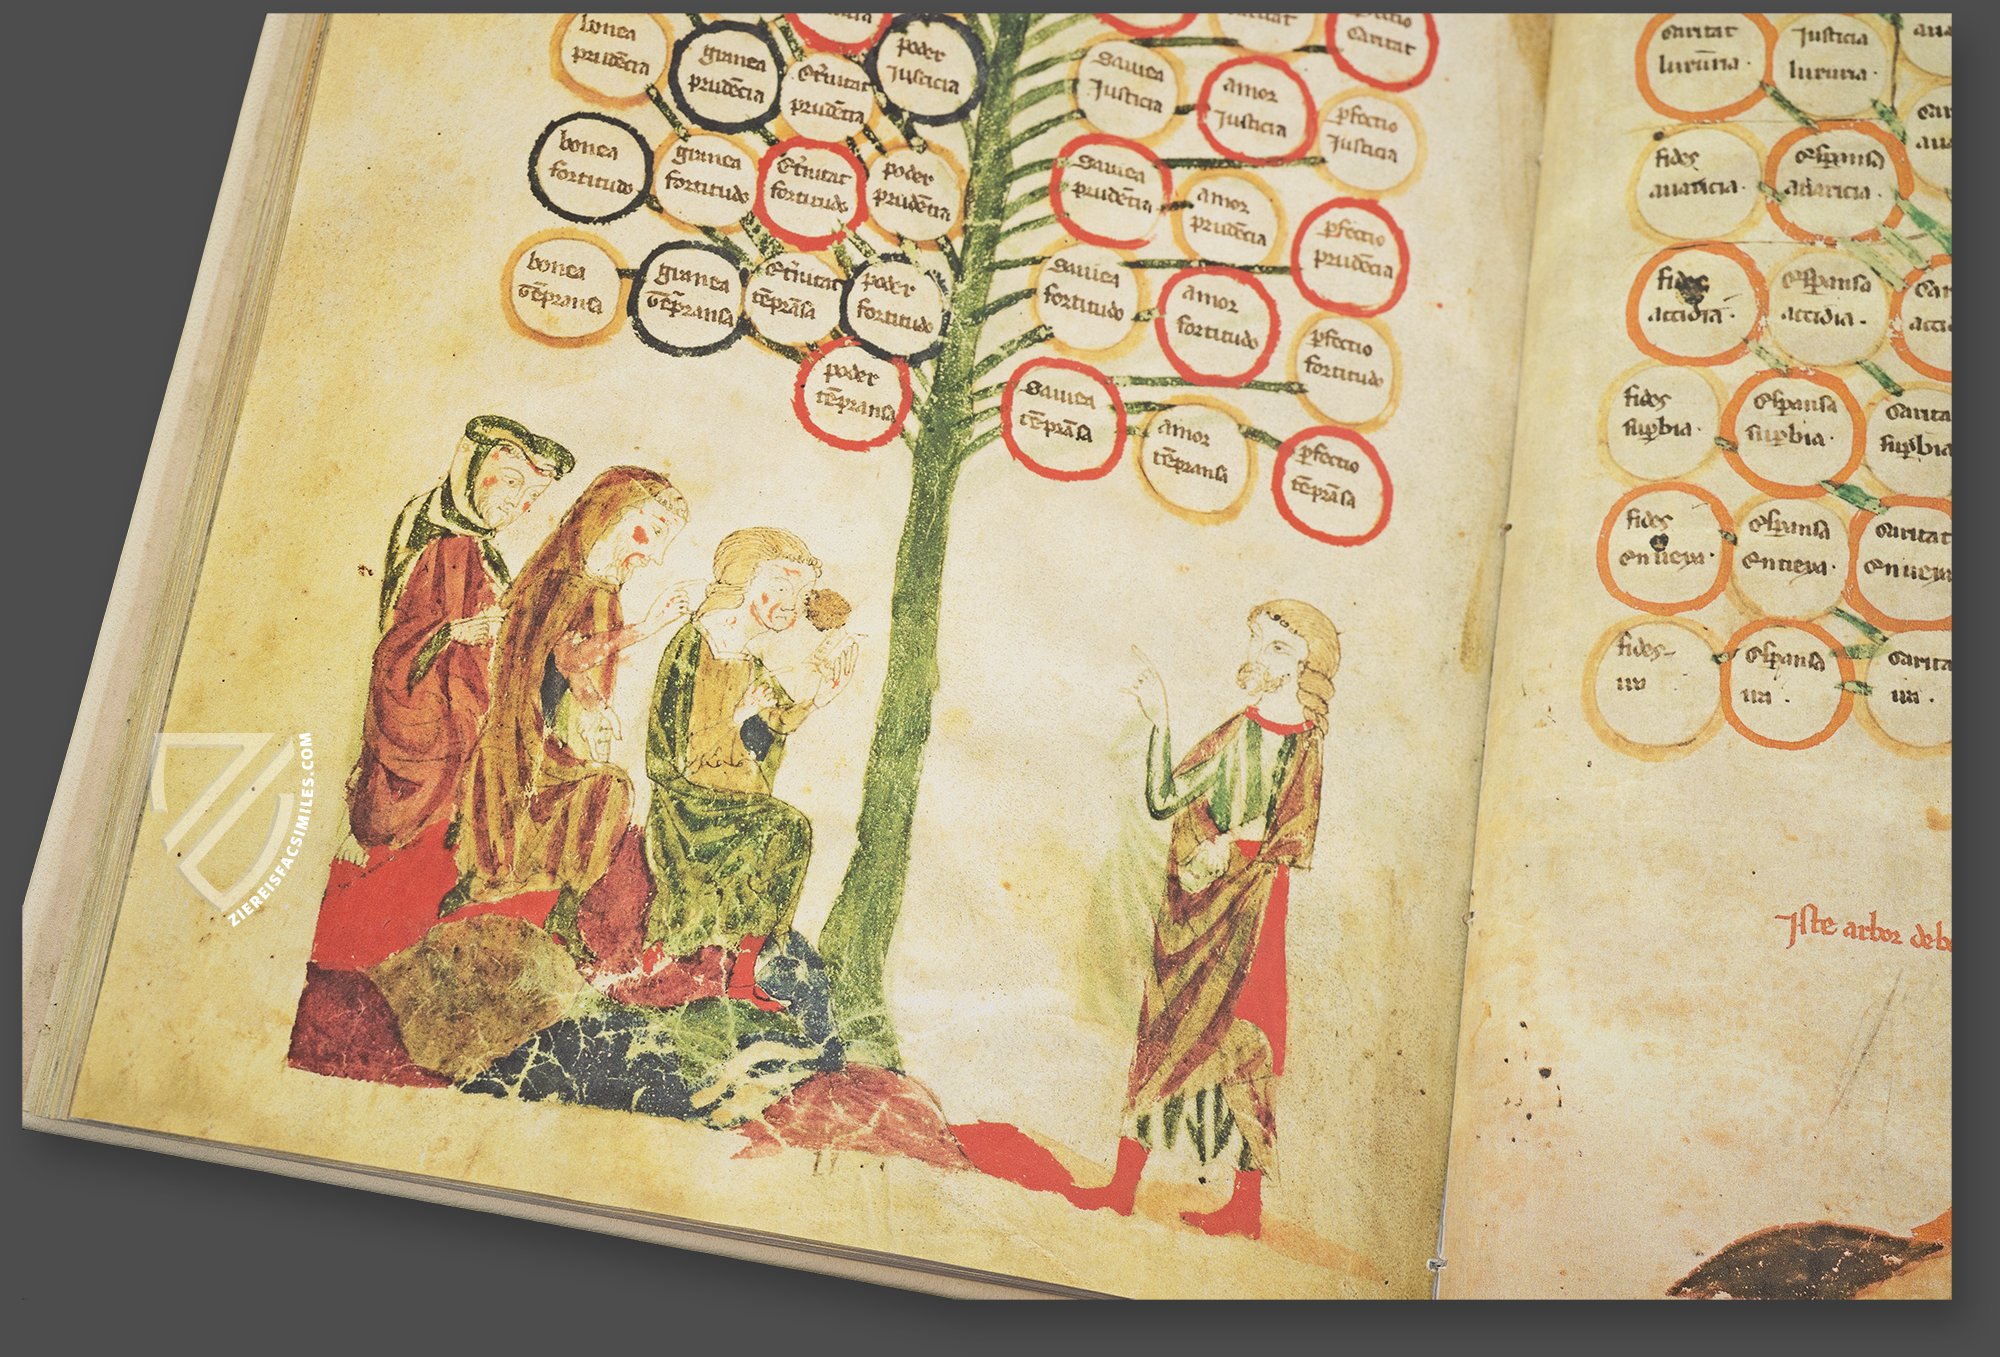 bonea
prudēcia
granea
prudēcia
et̄nitat
prudēcia
poder
Justicia
bonea
fortitudo
granea
fortitudo
et̄nitat
fortitudo
poder
prudēcia
bonea
tēpransa
granea
tēpransa
et̄nitat
tēprāsa
poder
fortitudo
poder
tēpransa
caritat
sauiea
Justicia
amor
Justicia
ꝑfectio
Justicia
sauiea
prudēcia
amor
prudēcia
ꝑfectio
prudēcia
sauiea
fortitudo
amor
fortitudo
ꝑfectio
fortitudo
sauiea
tēprāsa
amor
tēpransa
ꝑfectio
tēprāsa
caritat
luxuria
Justicia
luxuria
fides
auaricia
esꝑansa
auaricia
fides
accidia
esꝑansa
accidia
fides
suꝑbia
esꝑansa
suꝑbia
carita
suꝑbi
fides
enueya
esꝑansa
enueya
caritat
enueya
fides
ira
esꝑansa
ira
carita
ira
Iste arbor deb
ZIEREISFACSIMILES.COM